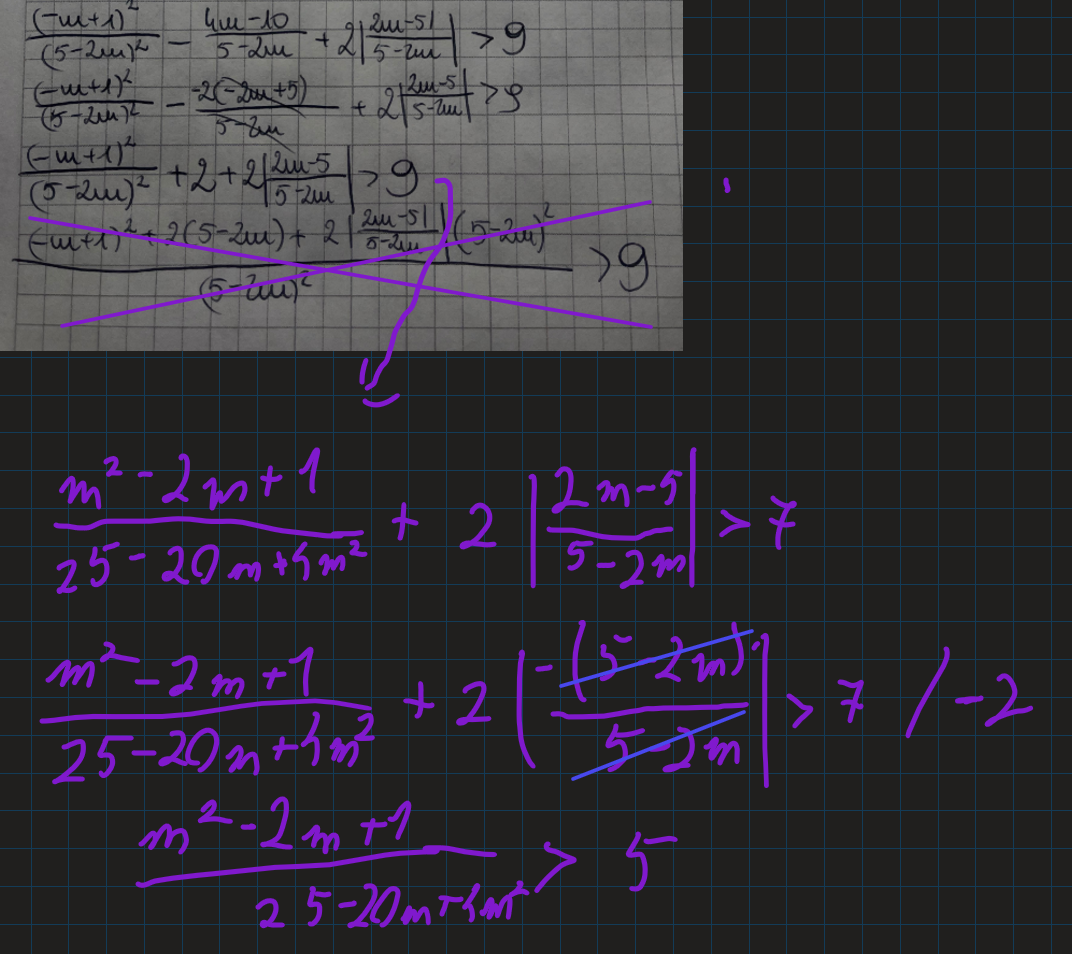 (-m+1)²/(5-2m)² - (4m-10)/(5-2m) + 2|(2m-5)/(5-2m)| > 9
(-m+1)²/(5-2m)² - -2(-2m+5)/(5-2m) + 2|(2m-5)/(5-2m)| > 9
(-m+1)²/(5-2m)² + 2 + 2|(2m-5)/(5-2m)| > 9
((-m+1)² + 2(5-2m) + 2|(2m-5)/(5-2m)|(5-2m)²)/(5-2m)² > 9
(m²-2m+1)/(25-20m+4m²) + 2|(2m-5)/(5-2m)| > 7
(m²-2m+1)/(25-20m+4m²) + 2|-(5-2m)/(5-2m)| > 7 / -2
(m²-2m+1)/(25-20m+4m²) > 5